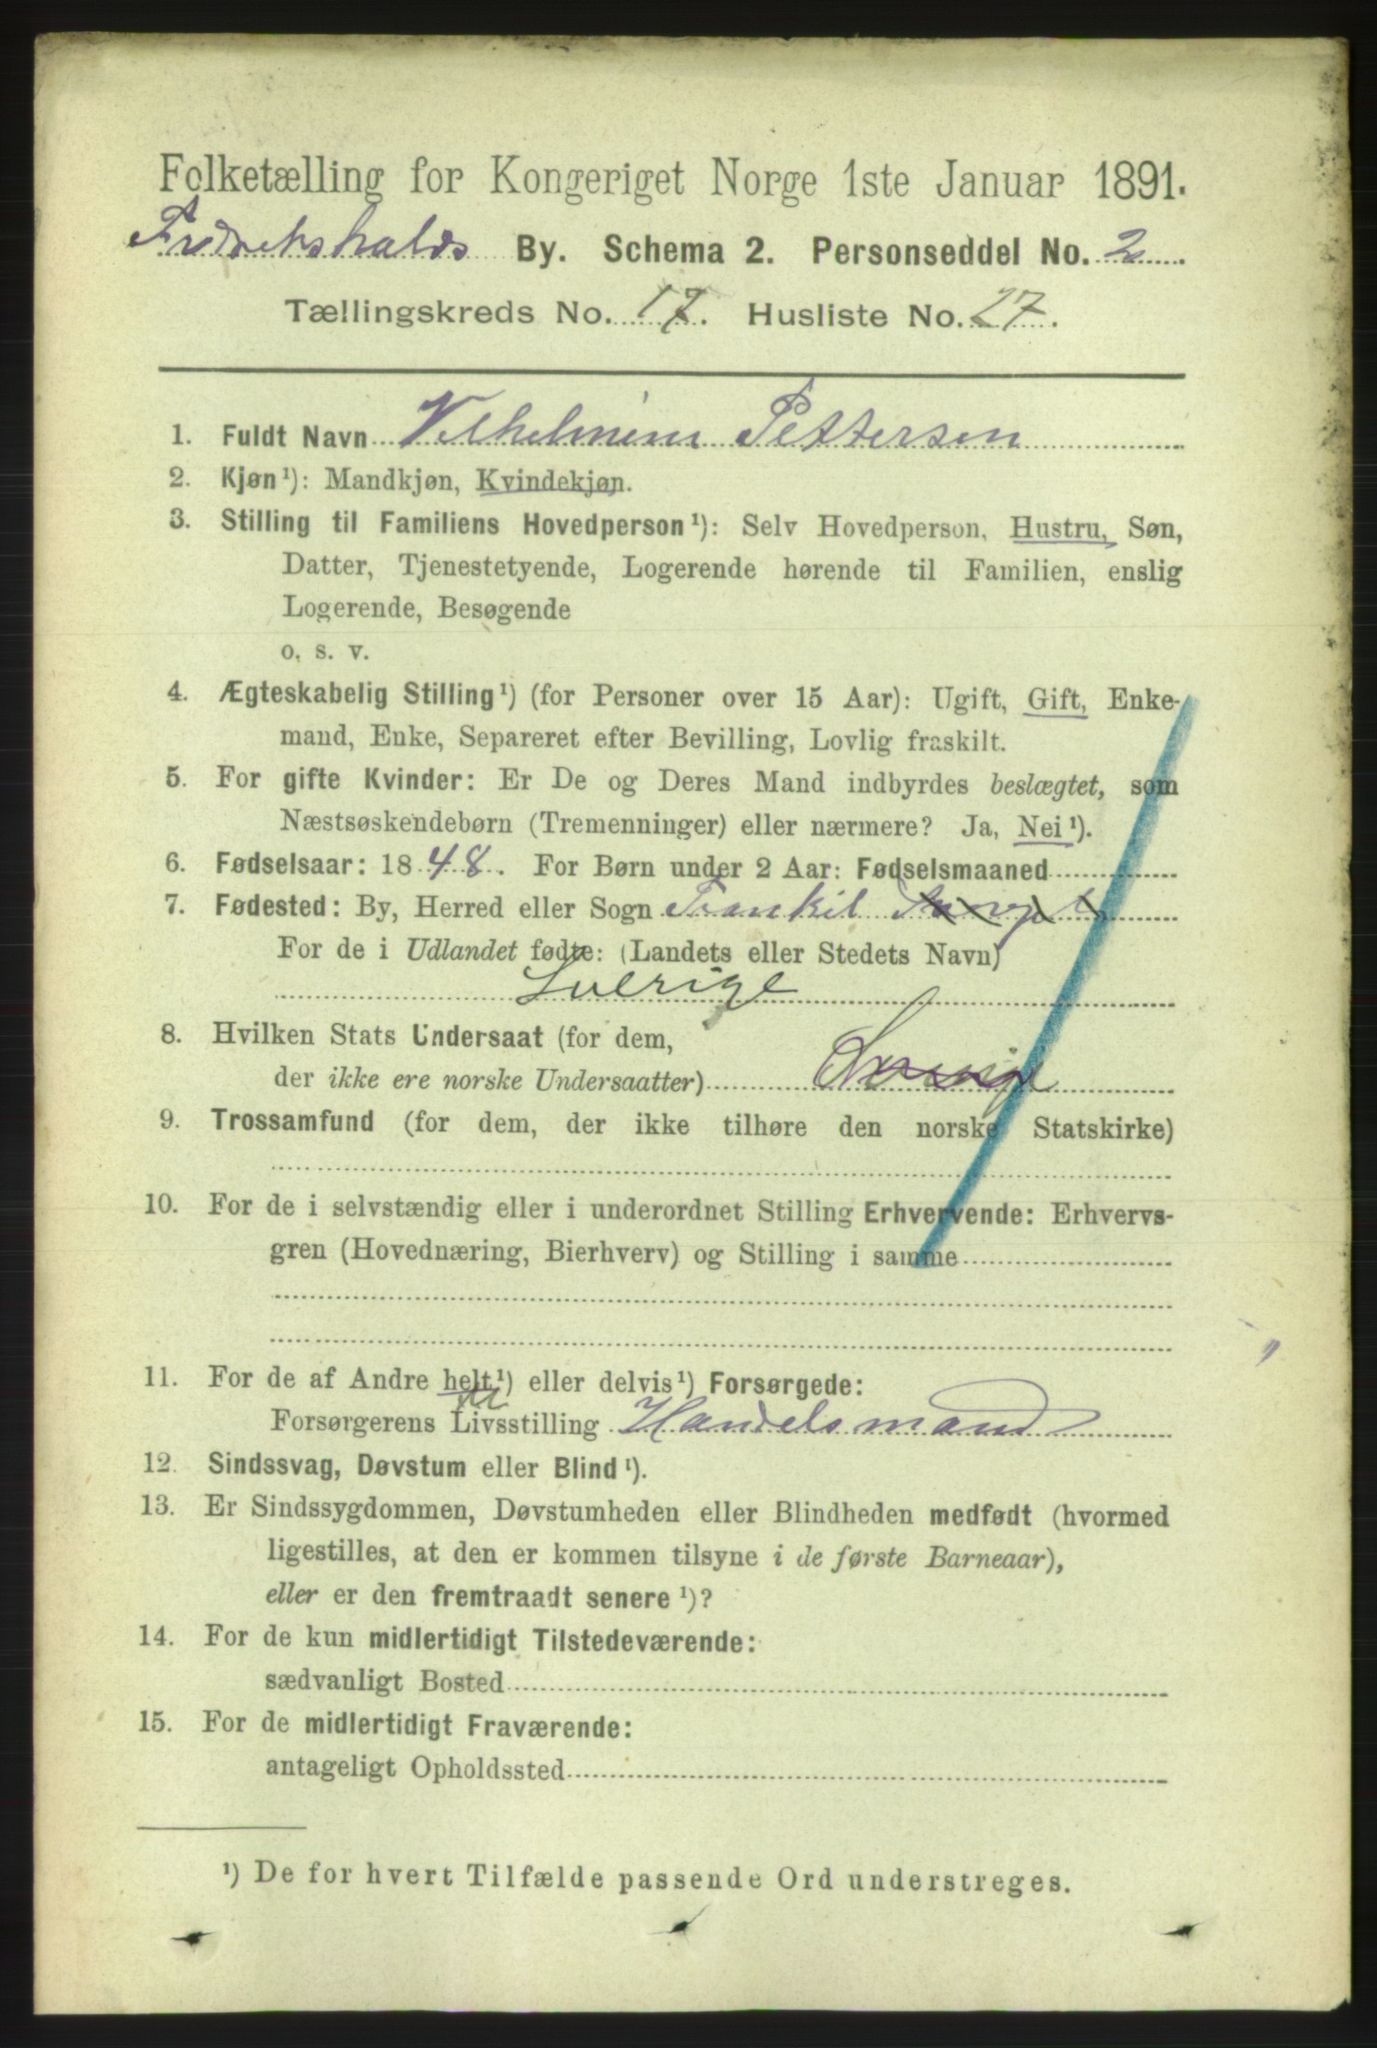 Folketælling for Kongeriget Norge 1ste Januar 1891.
Fredrikshalds By. Schema 2. Personseddel No. 2
Tællingskreds No. 17. Husliste No. 27.
1. Fuldt Navn Vilhelmine Pettersen
2. Kjøn¹): Mandkjøn, Kvindekjøn.
3. Stilling til Familiens Hovedperson¹): Selv Hovedperson, Hustru, Søn,
Datter, Tjenestetyende, Logerende hørende til Familien, enslig
Logerende, Besøgende
o. s. v.
4. Ægteskabelig Stilling¹) (for Personer over 15 Aar): Ugift, Gift, Enke-
mand, Enke, Separeret efter Bevilling, Lovlig fraskilt.
5. For gifte Kvinder: Er De og Deres Mand indbyrdes beslægtet, som
Næstsøskendebørn (Tremenninger) eller nærmere? Ja, Nei¹).
6. Fødselsaar: 1848. For Børn under 2 Aar: Fødselsmaaned
7. Fødested: By, Herred eller Sogn
For de i Udlandet fødte: (Landets eller Stedets Navn)
Sverige
8. Hvilken Stats Undersaat (for dem,
der ikke ere norske Undersaatter) Sverige
9. Trossamfund (for dem, der ikke tilhøre den norske Statskirke)
10. For de i selvstændig eller i underordnet Stilling Erhvervende: Erhvervs-
gren (Hovednæring, Bierhverv) og Stilling i samme
11. For de af Andre helt¹) eller delvis¹) Forsørgede:
Forsørgerens Livsstilling Handelsmand
12. Sindssvag, Døvstum eller Blind¹).
13. Er Sindssygdommen, Døvstumheden eller Blindheden medfødt (hvormed
ligestilles, at den er kommen tilsyne i de første Barneaar),
eller er den fremtraadt senere¹)?
14. For de kun midlertidigt Tilstedeværende:
sædvanligt Bosted
15. For de midlertidigt Fraværende:
antageligt Opholdssted
¹) De for hvert Tilfælde passende Ord understreges.